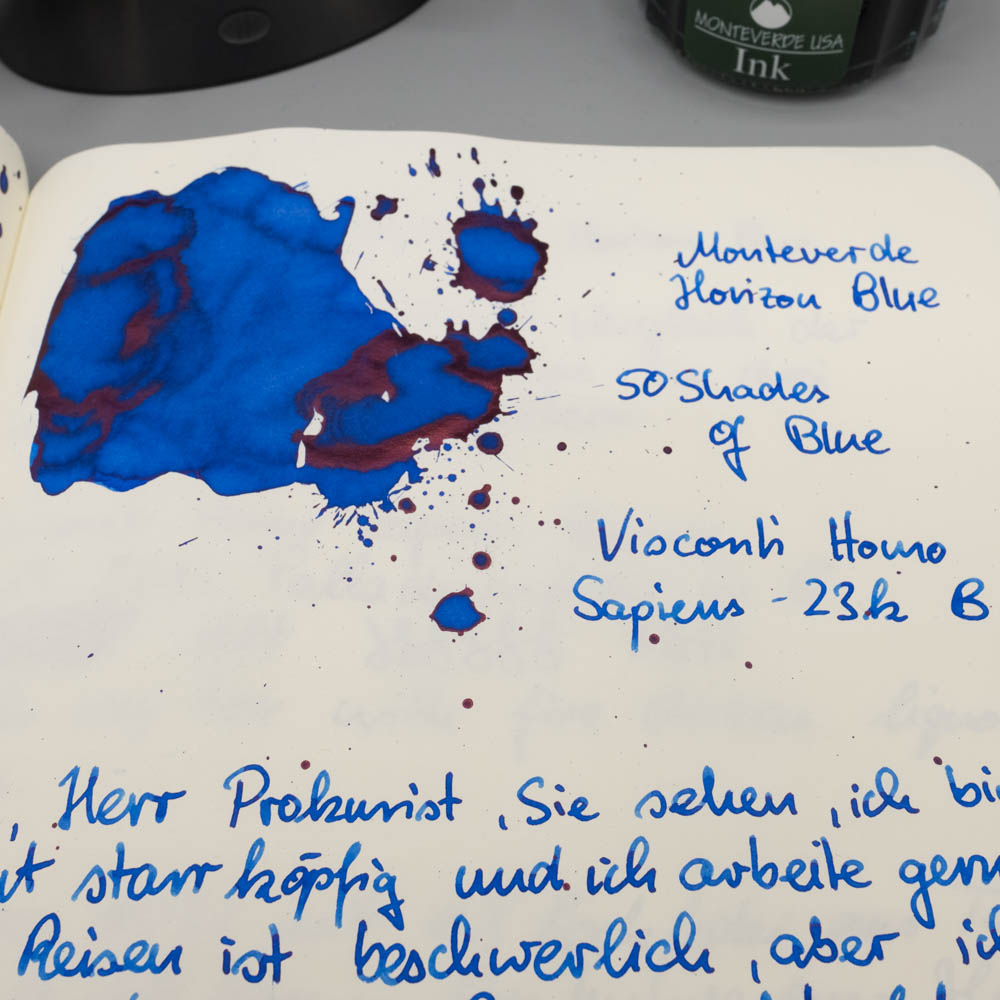 MONTEVERDE USA
Ink
Monteverde
Horizon Blue
50 Shades
of Blue
Visconti Homo
Sapiens - 23k B
, Herr Prokurist, Sie sehen, ich bi
starrköpfig und ich arbeite gern
Reisen ist beschwerlich, aber ic